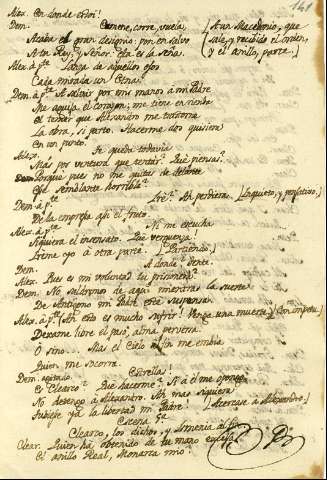 141
Alex. En donde estoi!
Dem. Camene, corre, vuela, (A un Macedonio, que
Acaba el gran designio: pon en salvo sale, y recibida el orden,
A tu Rey, y Señor. Esta es la seña. y el anillo, parte.)
Alex. á pte. Lanza de aquellos ojos
Cada mirada un Etna.
Dem. á pte. A salvar por mi manos á mi Padre
Me aguija el corazon; me tiene en rienda
El temor que Alexandro me trastorne
La obra, si parto. Hacerme dos quisiera
En un punto.
Alex. Se queda todavia
Mas por ventura que sentir? Qué piensas?
Porqué pues no me quitas de delante
Ese semblante horrible?
Dem. á pte. Iré? Ah perdiera (Inquieto, y pensativo.)
De la empresa asi el fruto.
Alex. á pte. Ni me escucha
Siquiera el insensato. Qué verguenza!
Iréme yo á otra parte. (Partiendo.)
Dem. A donde? Tente.
Alex. Pues es mi voluntad tu prisionera?
Dem. No saldremos de aqui mientras la suerte
De mi Padre esté suspensa.
Alex. á pte. (Ah esto es mucho sufrir! Venga una muerte) (Con impetu.)
Dexame libre el paso, alma perversa.
O sino... Mas el Cielo en fin me embia
Quien me socorra.
Dem. agitado. Estrellas!
Es Clearco? Qué hacerme? Si á él me opongo
No detengo á Alexandro. Ah mas siquiera
Subiese ya la libertad mi Padre (Acercase á Alexandro.)
Escena 9ª
Clearco, los dichos, y Armenia al fin
Clear. Quien ha obtenido de tu mano excelsa
El anillo Real, Monarca mio.